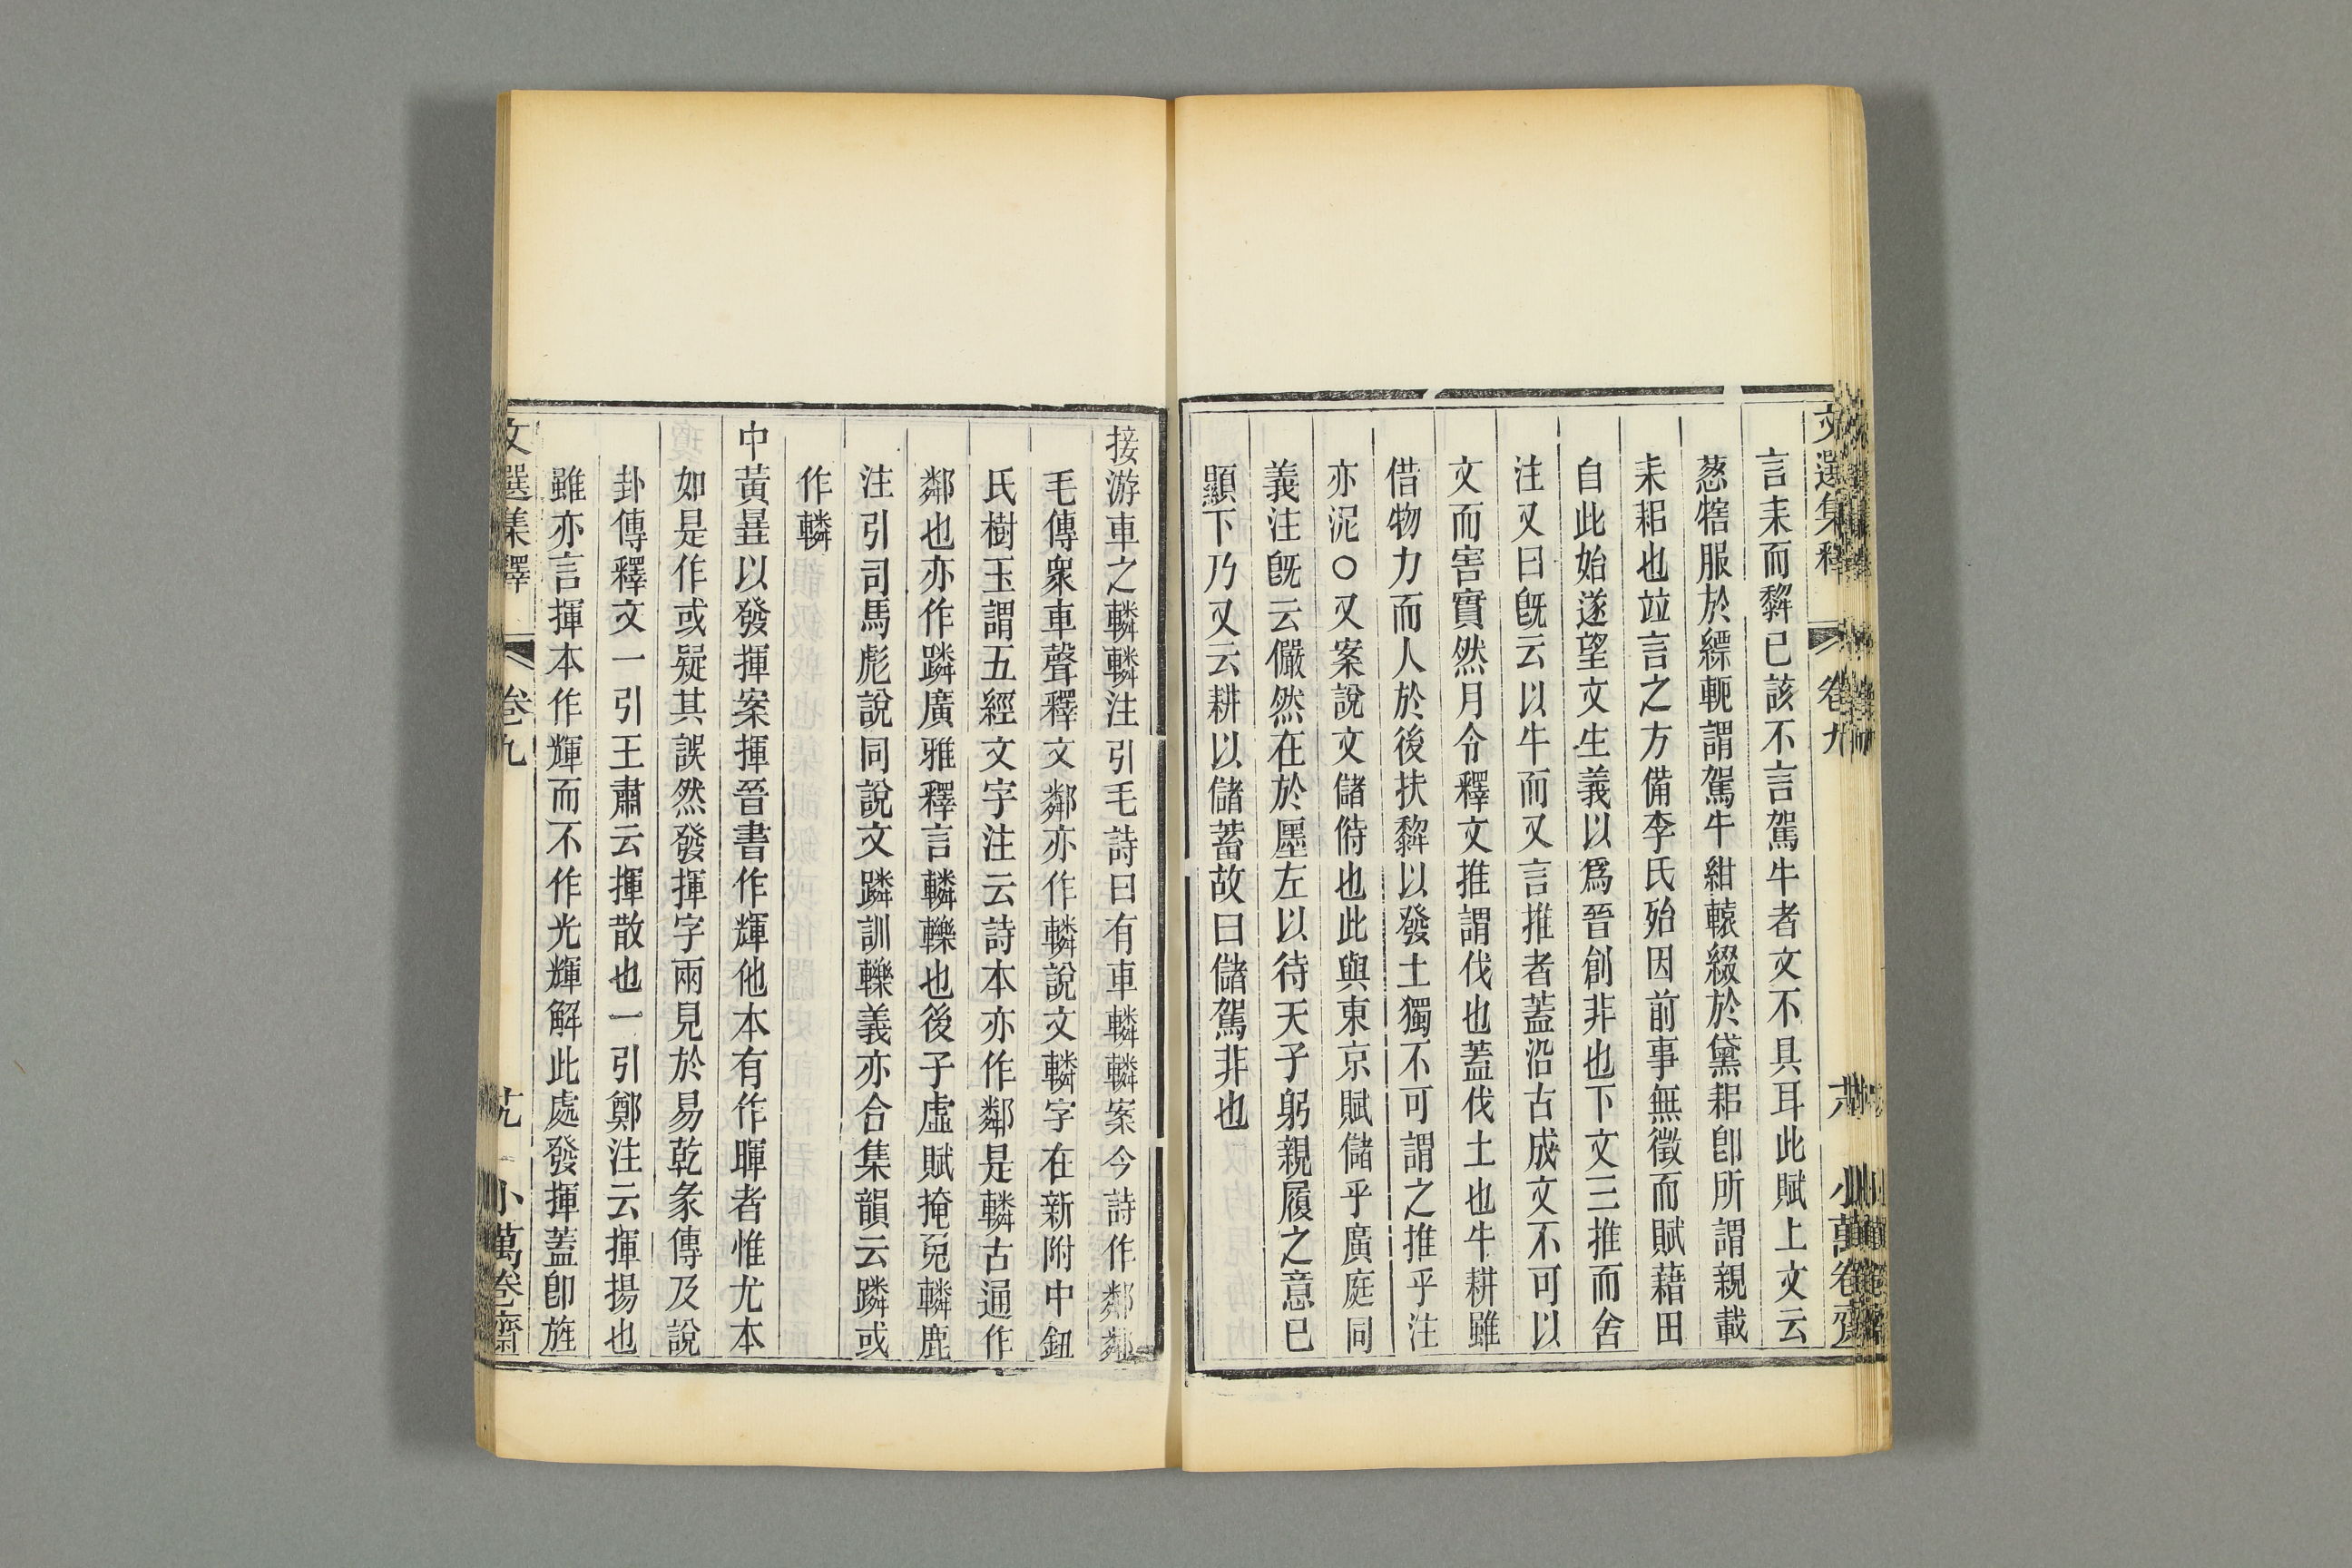 文選集釋 卷九 小萬卷齋
言耒而犂已該不言駕牛者文不具耳此賦上文云
葱犗服於縹軛謂駕牛紺轅綴於黛耜卽所謂親載
耒耜也竝言之方備李氏殆因前事無徵而賦藉田
自此始遂望文生義以爲晉創非也下文三推而舍
注又曰旣云以牛而又言推者蓋沿古成文不可以
文而害實然月令釋文推謂伐也蓋伐土也牛耕雖
借物力而人於後扶犂以發土獨不可謂之推乎注
亦泥○又案說文儲偫也此與東京賦儲乎廣庭同
義注旣云儼然在於㕓左以待天子躬親履之意已
顯下乃又云耕以儲蓄故曰儲駕非也
接游車之轔轔注引毛詩曰有車轔轔案今詩作鄰鄰
毛傳衆車聲釋文鄰亦作轔說文轔字在新附中鈕
氏樹玉謂五經文字注云詩本亦作鄰是轔古通作
鄰也亦作蹸廣雅釋言轔轢也後子虛賦掩兔轔鹿
注引司馬彪說同說文蹸訓轢義亦合集韻云蹸或
作轔
中黃㫒以發揮案揮晉書作輝他本有作暉者惟尤本
如是作或疑其誤然發揮字兩見於易乾彖傳及說
卦傳釋文一引王肅云揮散也一引鄭注云揮揚也
雖亦言揮本作輝而不作光輝解此處發揮蓋卽旌
文選集釋 卷九 小萬卷齋